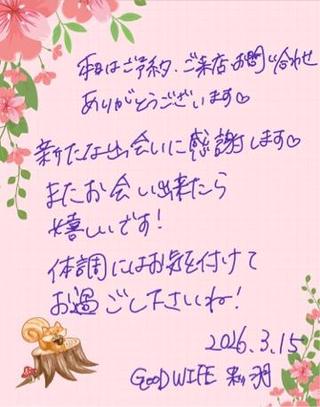 本日はご予約、ご来店、お問い合わせ
ありがとうございます♡
新たな出会いに感謝します♡
またお会い出来たら
嬉しいです!
体調にはお気を付けて
お過ごし下さいね!
2026.3.15
GOOD WIFE